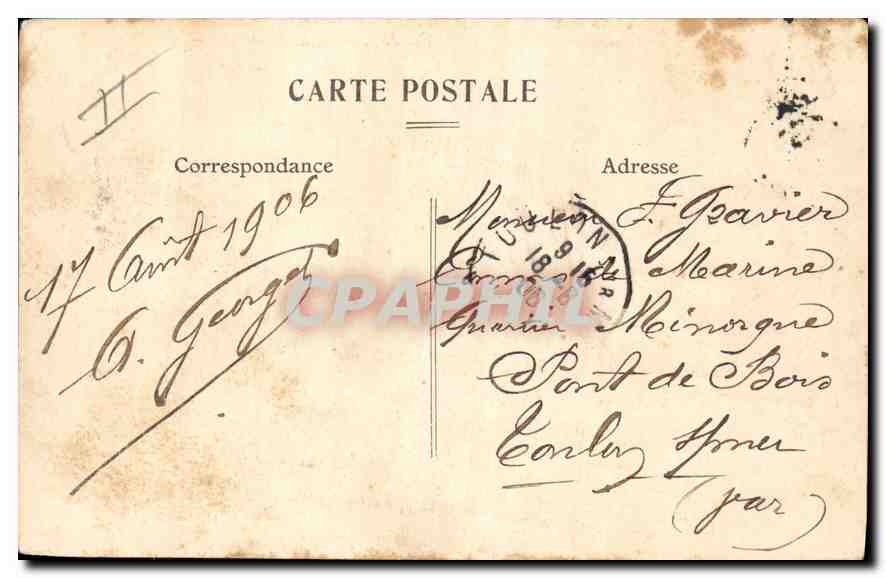 II
CARTE POSTALE
Correspondance
17 Août 1906
G. Georget
Adresse
Monsieur F. Gravier
Marine
Quartier Minorque
Pont de Bois
Toulon s/mer
(Var)
CPAPHIL
18